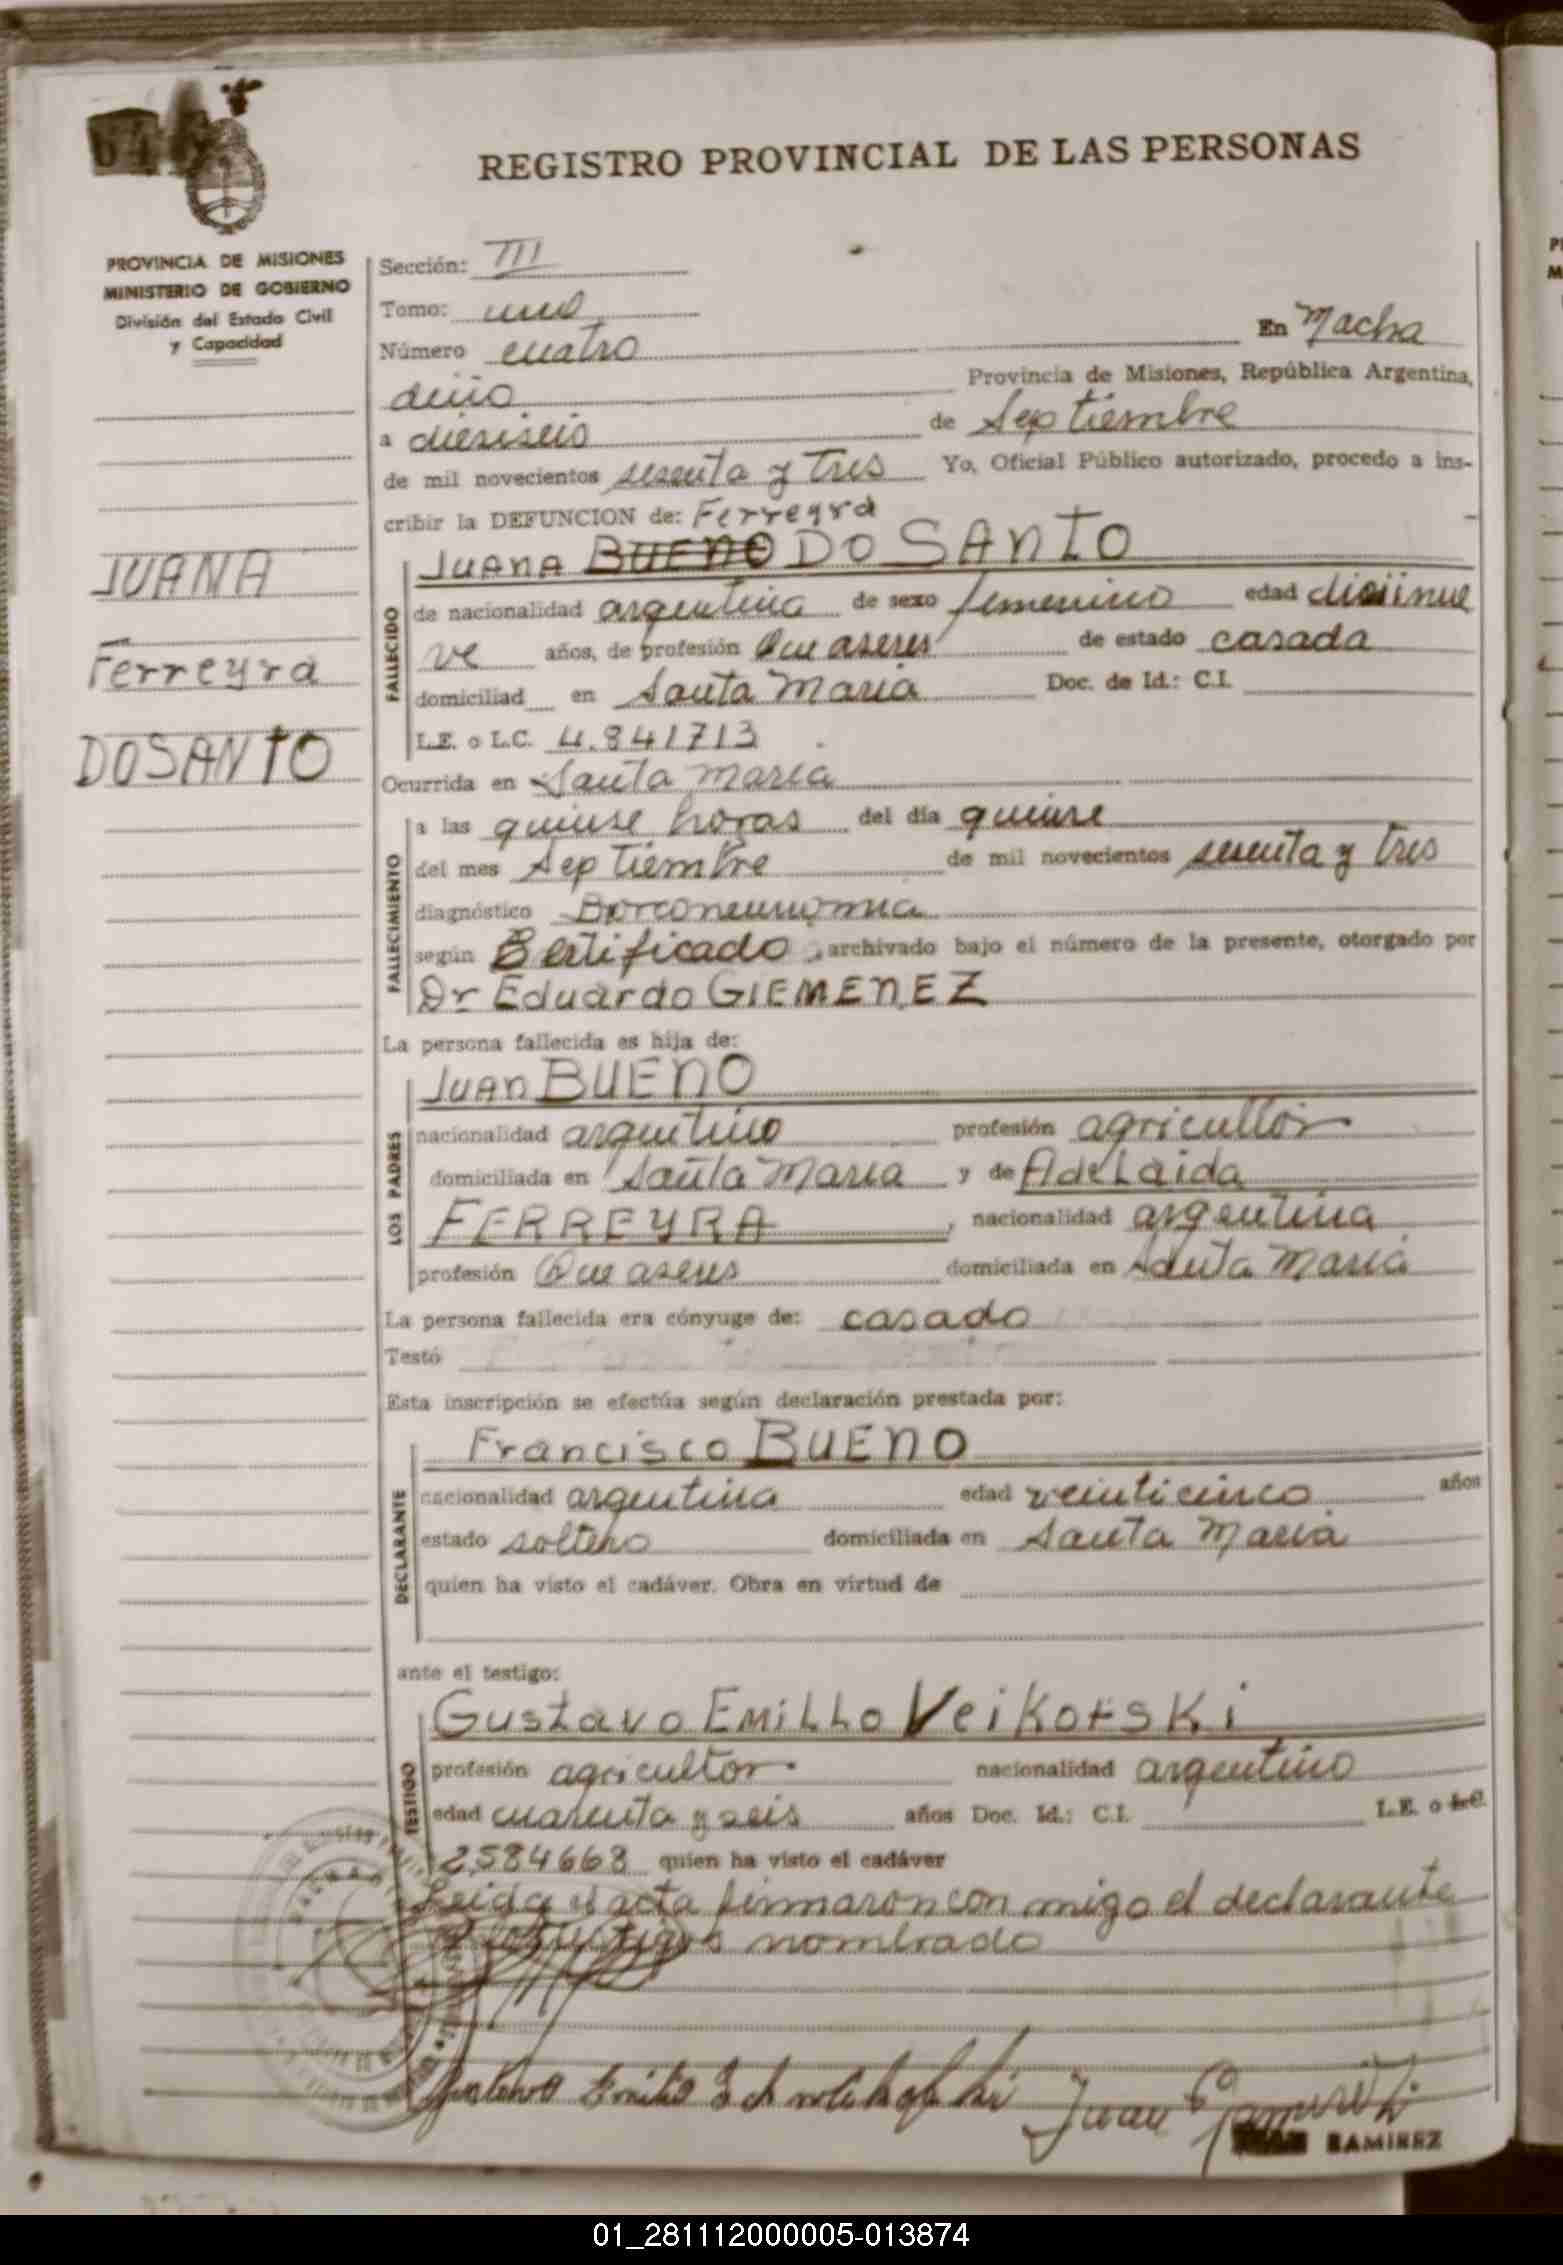 REGISTRO PROVINCIAL DE LAS PERSONAS
PROVINCIA DE MISIONES
MINISTERIO DE GOBIERNO
División del Estado Civil
y Capacidad
JUANA
Ferreyra
DOSANTO
Sección: III
Tomo: uno
Número cuatro En Macha
diño Provincia de Misiones, República Argentina,
a diesiseis de Septiembre
de mil novecientos sesenta y tres Yo, Oficial Público autorizado, procedo a ins-
cribir la DEFUNCION de: Ferreyra
FALLECIDO
Juana BUENO DO SANTO
de nacionalidad argentina de sexo femenino edad
ve años, de profesión Que aseres de estado casada
domiciliad en Santa Maria Doc. de Id.: C.I.
L.E. o L.C. 4.841713
Ocurrida en Santa Maria
FALLECIMIENTO
a las quinse horas del día quinse
del mes Septiembre de mil novecientos sesenta y tres
diagnóstico
según Certificado archivado bajo el número de la presente, otorgado por
Dr Eduardo GIEMENEZ
La persona fallecida es hija de:
LOS PADRES
Juan BUENO
nacionalidad argentino profesión agricultor
domiciliada en Santa Maria y de Adelaida
FERREYRA, nacionalidad argentina
profesión Que aseres domiciliada en Santa Maria
La persona fallecida era cónyuge de: casado
Testó
Esta inscripción se efectúa según declaración prestada por:
DECLARANTE
Francisco BUENO
nacionalidad argentina edad veinticinco años
estado soltero domiciliada en Santa Maria
quien ha visto el cadáver. Obra en virtud de
ante el testigo:
TESTIGO
Gustavo EmiLLo Veikofski
profesión agricultor nacionalidad argentino
edad cuarenta y seis años Doc. Id.: C.I. L.E. o L.C.
2584668 quien ha visto el cadáver
Leida el acta firmaron con migo el declarante
nombrado
Gustavo Emilio
Juan Ramirez
RAMIREZ
01_281112000005-013874